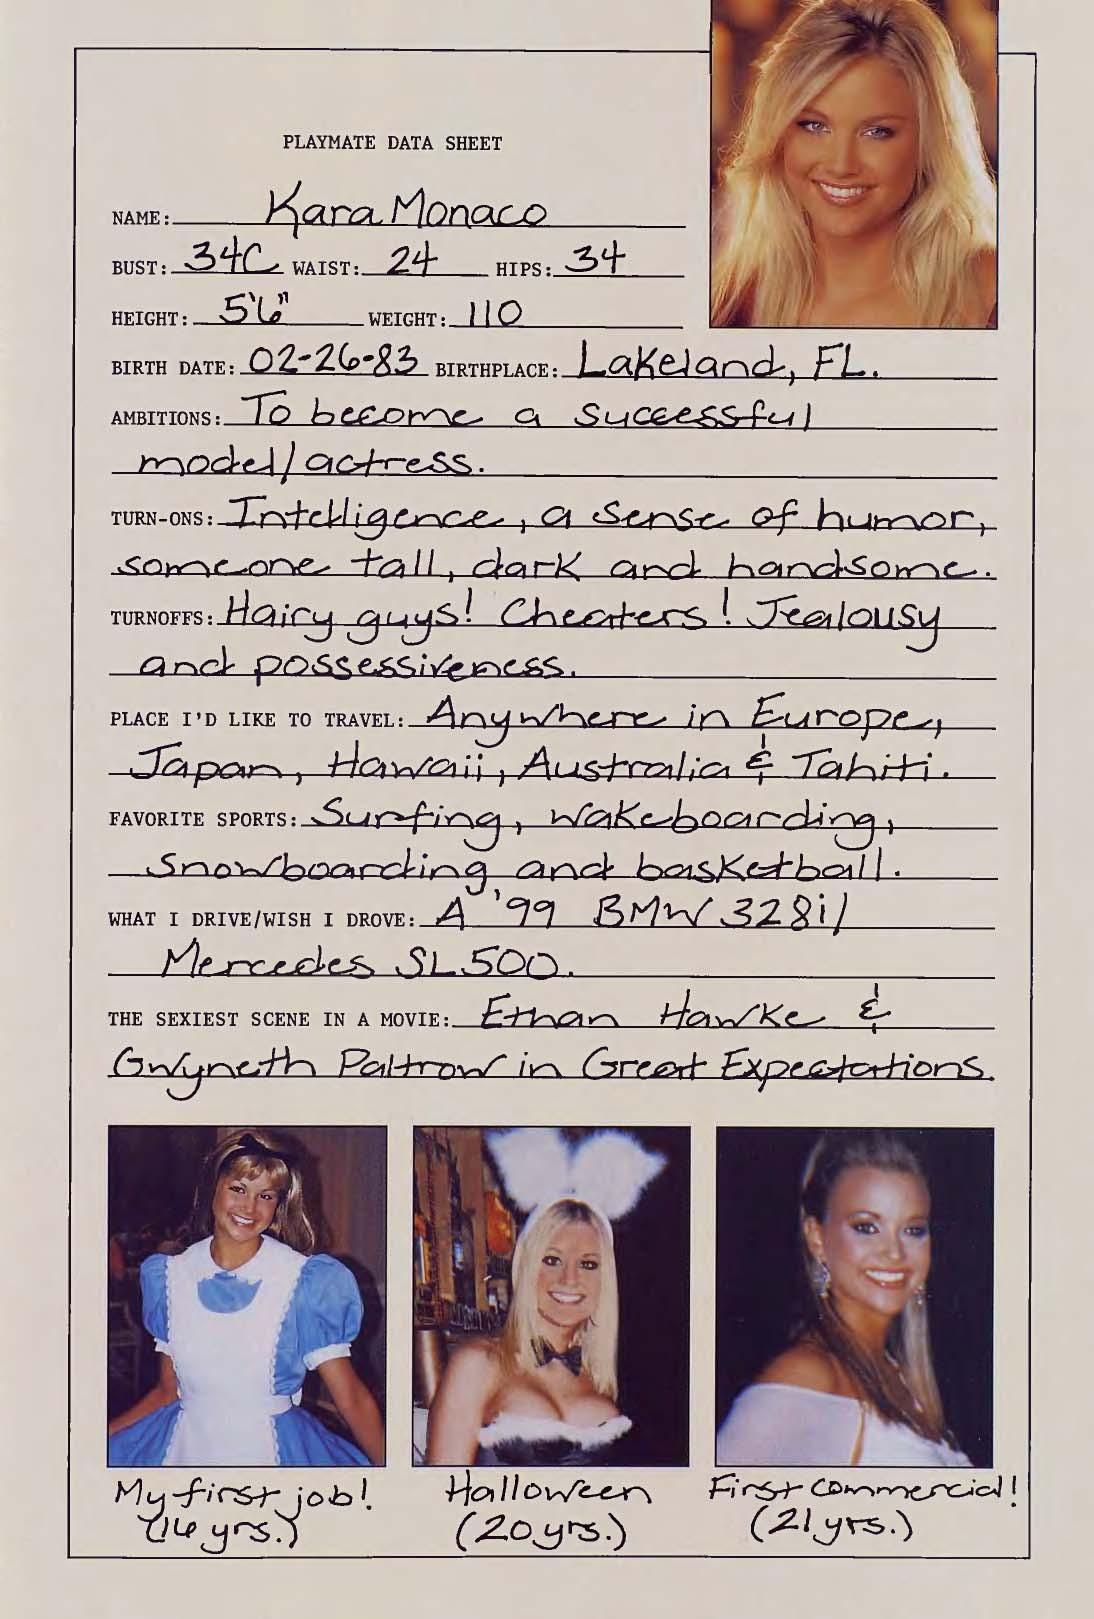 PLAYMATE DATA SHEET
NAME: Kara Monaco
BUST: 34C WAIST: 24 HIPS: 34
HEIGHT: 5'6" WEIGHT: 110
BIRTH DATE: 02-26-83 BIRTHPLACE: Lakeland, FL.
AMBITIONS: To become a successful
model/actress.
TURN-ONS: Intelligence, a sense of humor,
someone tall, dark and handsome.
TURNOFFS: Hairy guys! Cheaters! Jealousy
and possessiveness.
PLACE I'D LIKE TO TRAVEL: Anywhere in Europe,
Japan, Hawaii, Australia & Tahiti.
FAVORITE SPORTS: Surfing, wakeboarding,
snowboarding and basketball.
WHAT I DRIVE/WISH I DROVE: A '99 BMW 328i/
Mercedes SL500.
THE SEXIEST SCENE IN A MOVIE: Ethan Hawke &
Gwyneth Paltrow in Great Expectations.
My first job!
(16 yrs.)
Halloween
(20 yrs.)
First commercial!
(21 yrs.)